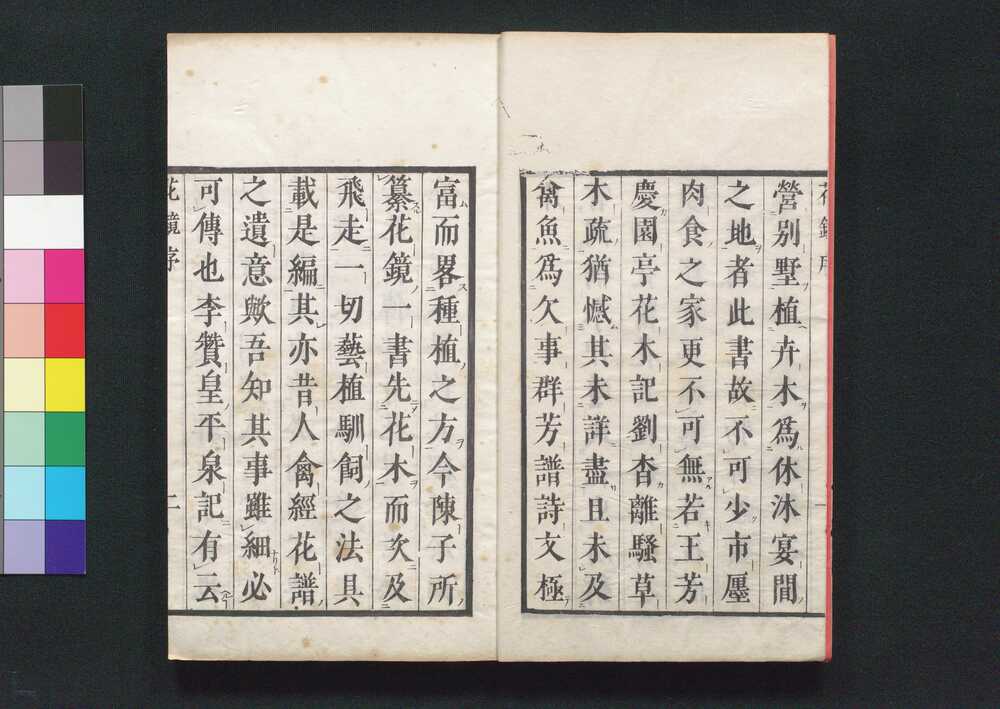 花鏡序
一
營別墅植卉木爲休沐宴間
之地者此書故不可少市廛
肉食之家更不可無若王芳
慶園亭花木記劉杳離騷草
木疏猶憾其未詳盡且未及
禽魚爲欠事群芳譜詩文極
富而畧種植之方今陳子所
纂花鏡一書先花木而次及
飛走一切藝植馴飼之法具
載是編其亦昔人禽經花譜
之遺意歟吾知其事雖細必
可傳也李贊皇平泉記有云
花鏡序
二